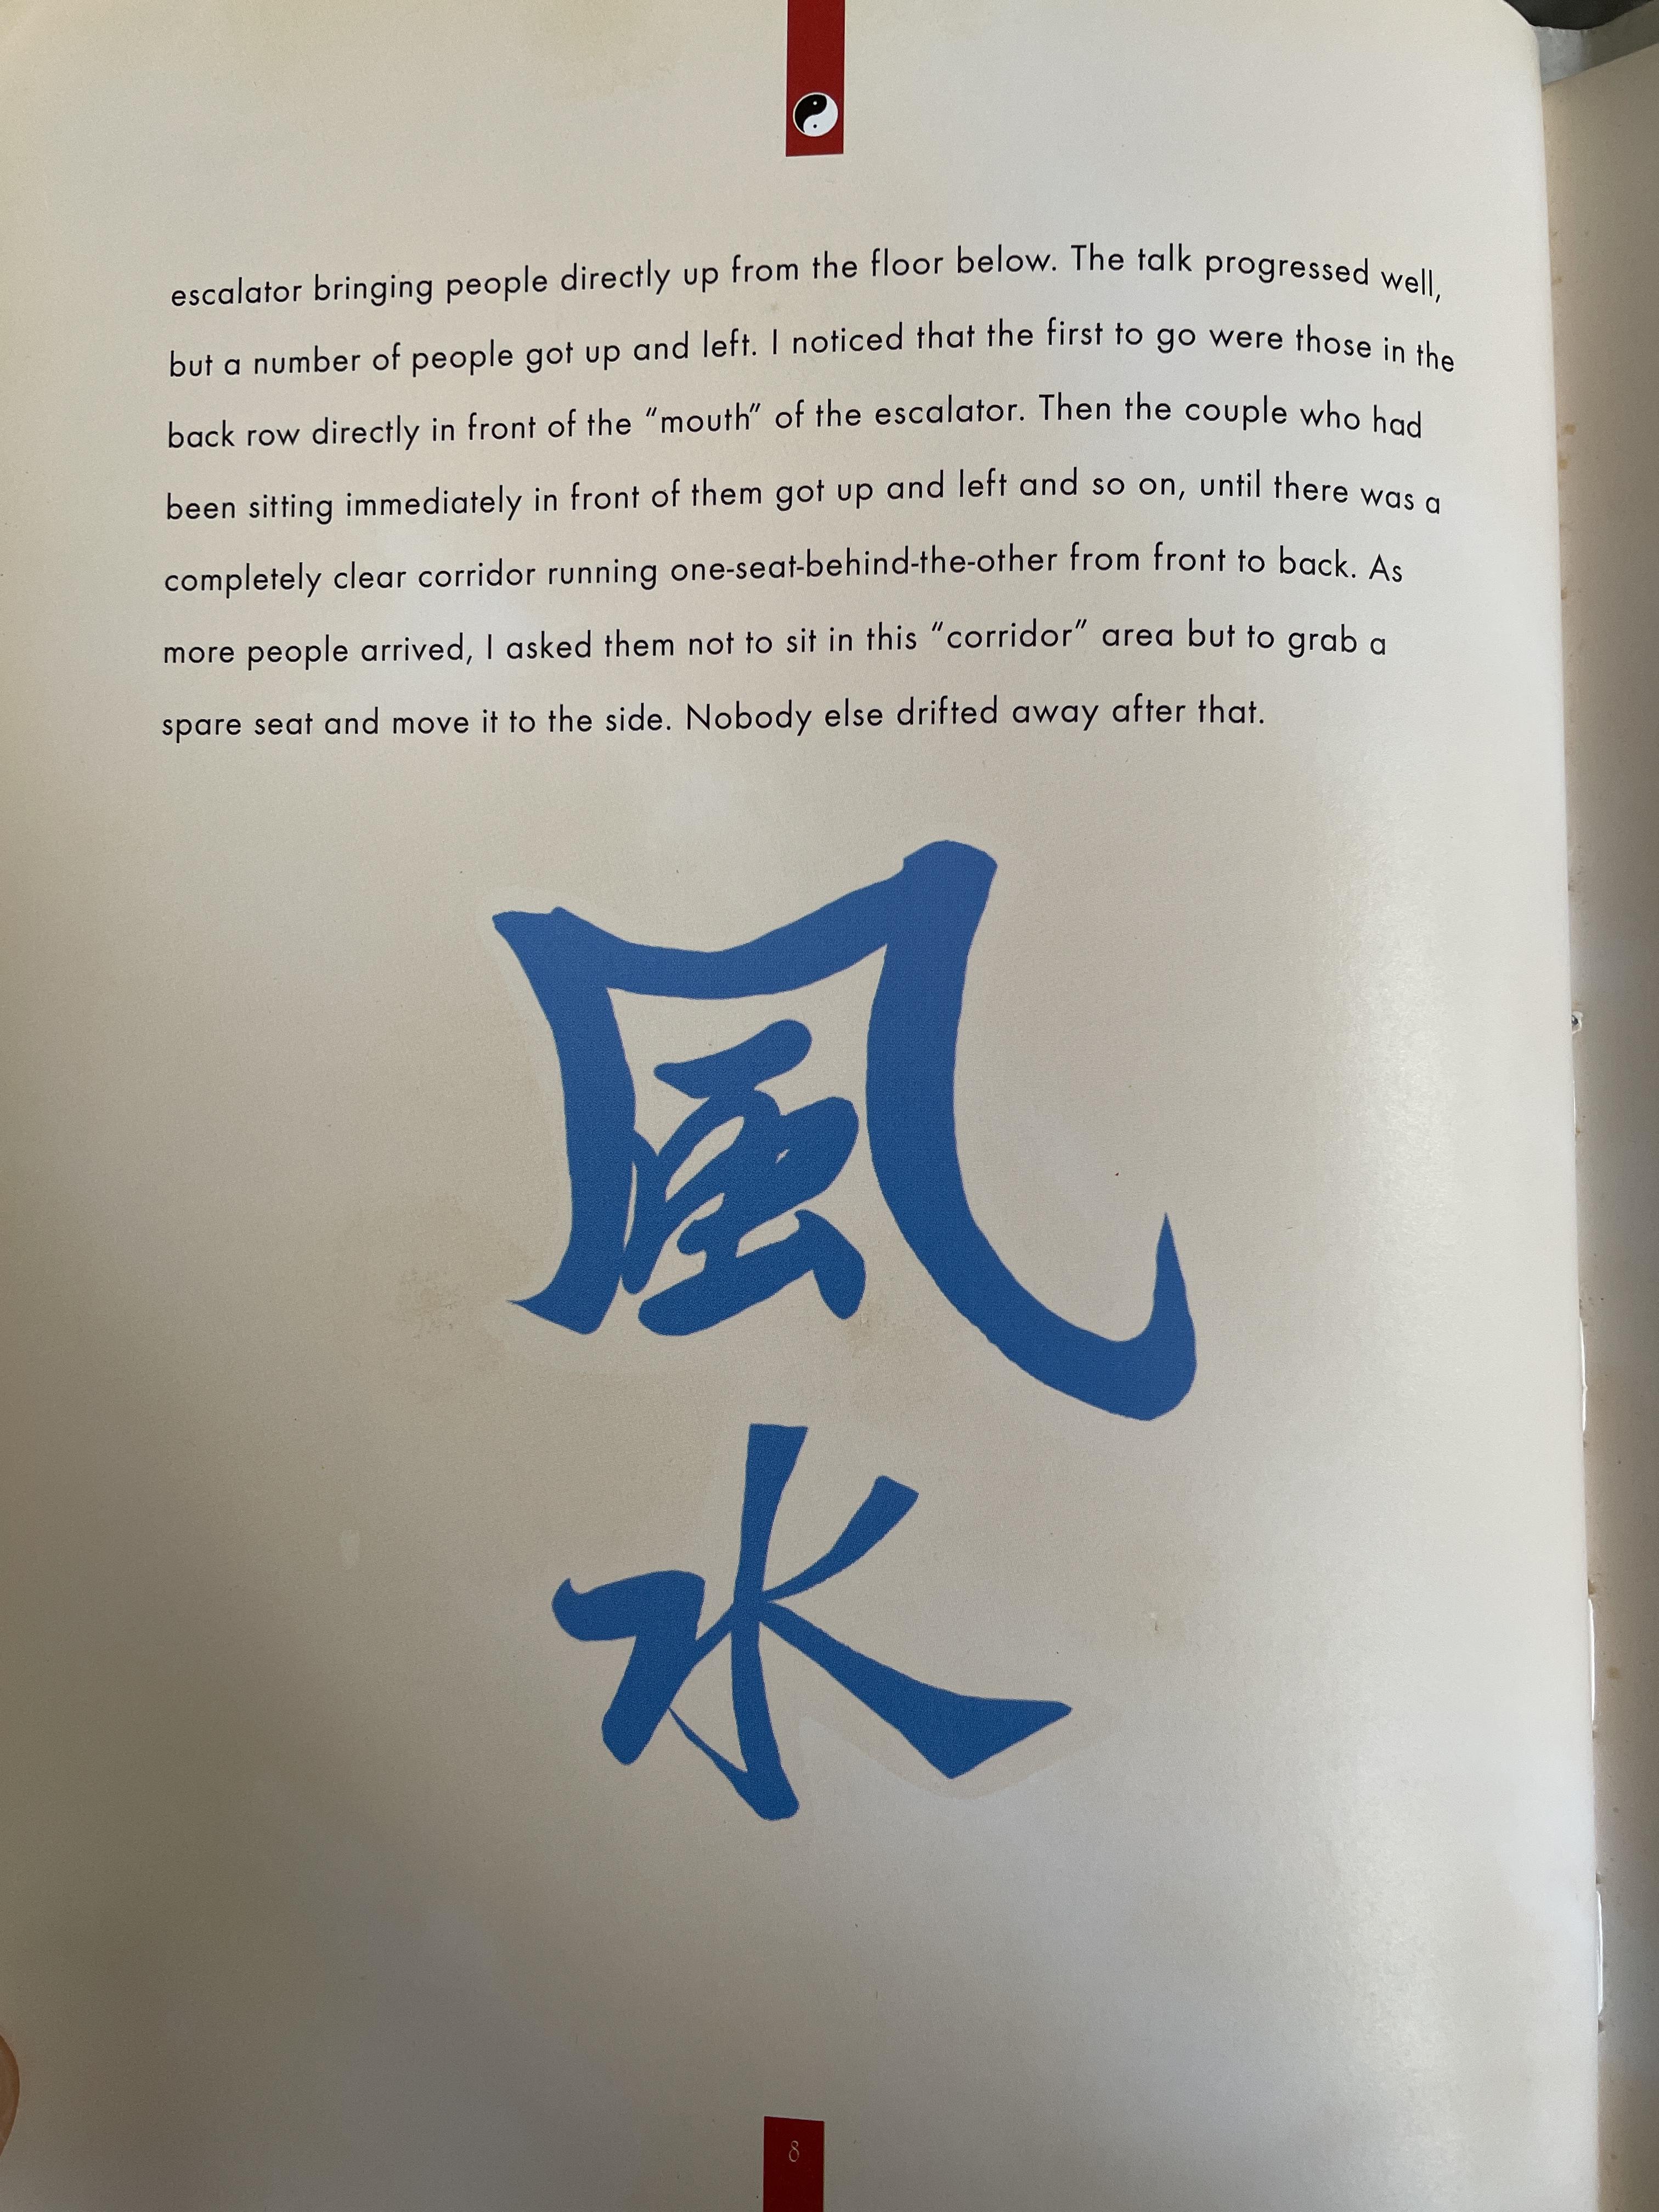 escalator bringing people directly up from the floor below. The talk progressed well,
but a number of people got up and left. I noticed that the first to go were those in the
back row directly in front of the “mouth” of the escalator. Then the couple who had
been sitting immediately in front of them got up and left and so on, until there was a
completely clear corridor running one-seat-behind-the-other from front to back. As
more people arrived, I asked them not to sit in this “corridor” area but to grab a
spare seat and move it to the side. Nobody else drifted away after that.
風
水
8